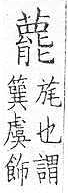 藣
旄也謂
簨虡飾